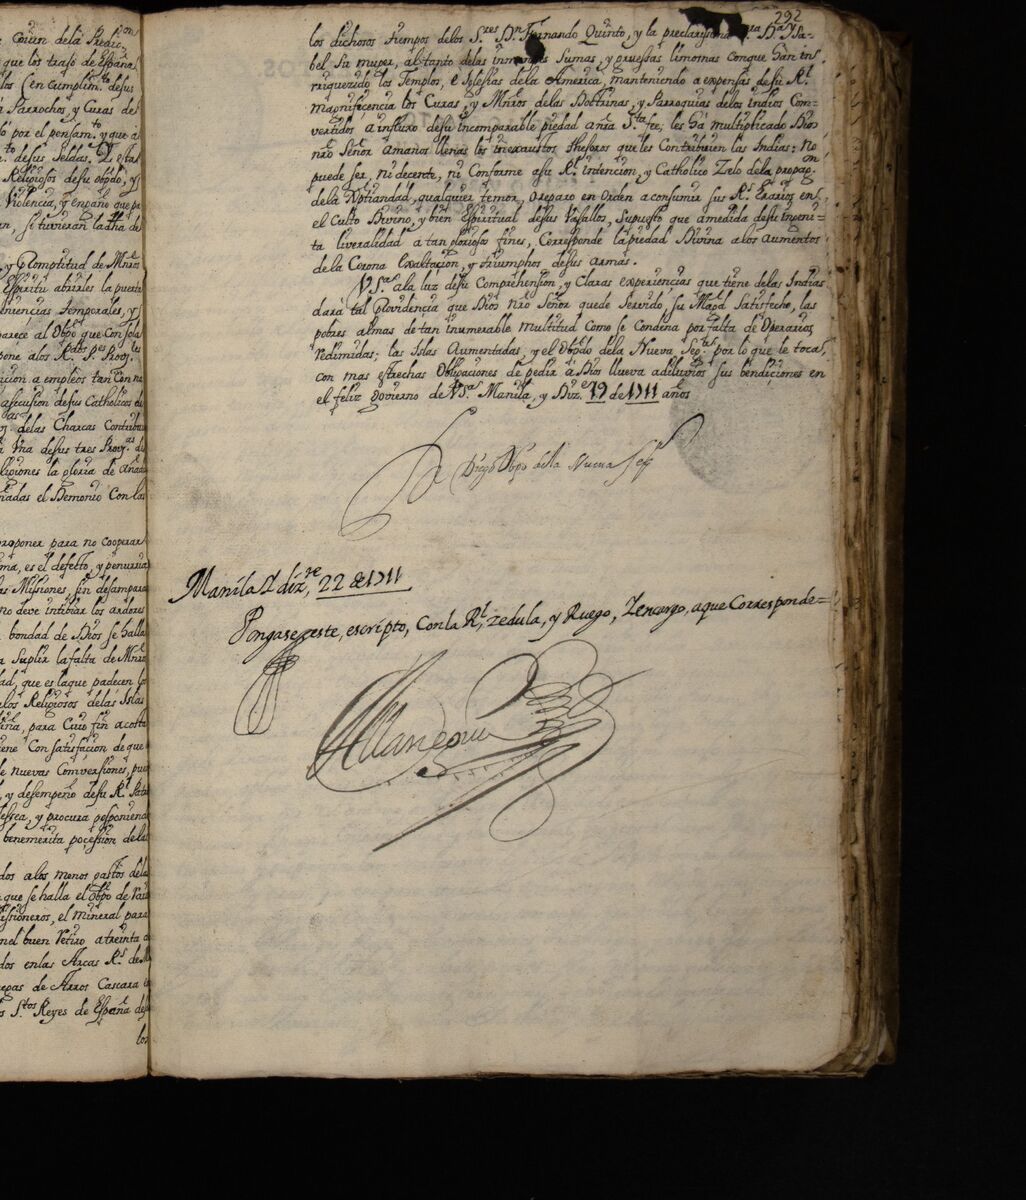 Couen dela Predic.on
que los trajo de España
los (en cumplim.to desus
Parrochos, y Curas de
por el pensam.to y que â
desus Seldas. De estas
Religiosos desu obpdo, y
Violencia, y engaño que pa
si tuvieran ladha de
y Promptitud de Mnrōs
Espiritu abriles la puerta
niencias temporales, y
parecé al Obpo que Consola
pone âlos R.dos P.es Prov.les
acion a empleos tan Conne
asecusion desus Catholicos
delas Charcas Contribu
Vna desus tres Prov.as
ligiones la gloria de
nadas el Demonio Con las
proponer para no cooperar
ma, es el defecto, y penuria
as Missiones, sin desampara
no deve intibiar los ardores
bondad de Dios se halla
Suplir la falta de Mnrōs
dad, que es laque padecen los
alos Religiosos delas Islas
para Cuio fin acosta
Con satisfacion de que
de nuevas Comversiones, pue
y desempeño desu R.l
dessea, y procura posponiend
benemerita pocession dela
dos alos menos gastos dela
que se halla el obpo de
issioneros, el mineral para
nel buen retiro atreinta
dos enlas Arcas R.s de M
de Arros Cascara
S.tos Reyes de España des
los
292
los dichosos tiempos delos S.res D.n Fernando Quinto, y la preclarissima D.a Ysa-
bel Su muger, al tanto delas inmensas Sumas, y gruessas limosnas conque han en-
rriquezido los Templos, e Iglesias de la America, manteniendo a expensas desu R.l
magnificencia los Curas, y Mnrōs delas Doctrinas, y Parroquias delos indios Com-
vertidos a influxo desu incomparable piedad anrā S.ta fee; les ha multiplicado Dios
nrō Señor amanos llenas los inexaustos thesoros que les Contribuien las Indias: no
puede ser, ni decente, ni Conforme asu R.l intencion, y Catholico Zelo dela propag.on
dela Xptiandad, qualquier temor, o reparo en Orden a consumir sus R.s Erarios en
el Culto Divino, y bien Espiritual desus Vasallos, Supuesto que amedida desu inmen-
ta liveralidad a tan gloriosos fines, Corresponde la piedad Divina alos aumentos
de la Corona Exaltacion, y triumphos desus armas.
V.S.a ala luz desu Comprehension, y Claras experiencias que tiene delas Indias
dara tal Providencia que Dios nrō Señor quede Servido, su Mag.d Satisfecho, las
pobres almas de tan inumerable multitud como se Condena por falta de Operarios
redimidas; las Islas Aumentadas, y el Obpdo dela Nueva Seg.a por lo que le toca,
con mas estrechas Obligaciones de pedir a Dios llueva adeluvios sus bendiciones en
el feliz govierno de V.S.a Manila, y Diz.e 19 de 1711 años
Diego Obpo dela Nueva Seg.a
Manila Y diz.re 22 de 1711
Pongase, este, escripto, Con la R.l zedula, y Ruego, Y encargo, aque Corresponde=